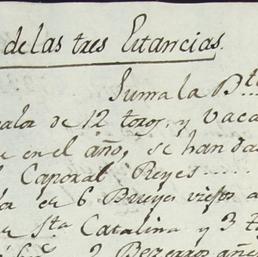 de las tres Estancias.
Suma la B.ta
valor de 12 toros, y Vaca
e en el año, se han da
l Caporal Reyes
or de 6 Bueyes viejos a
n Sta Catalina y 3 t
2 Bezerros añe